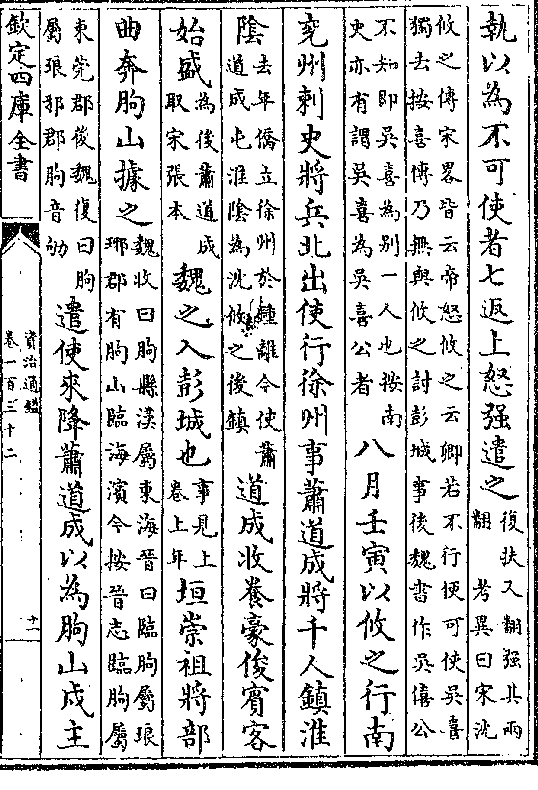 執以為不可使者七返上怒强遣之復扶又翻强其兩翻考異曰宋沈
攸之傳宋畧皆云帝怒攸之云卿若不行便可使吳喜獨去按喜傳乃無與攸之討彭城事後魏書作吳僖公
不知即吳喜為別一人也按南史亦有謂吳喜為吳喜公者八月壬寅以攸之行南
兖州刺史將兵北出使行徐州事蕭道成將千人鎮淮
陰去年僑立徐州於鍾離今使蕭道成屯淮陰為沈攸之後鎮道成收養豪俊賓客
始盛為後蕭道成取宋張本魏之入彭城也事見上卷上年垣崇祖將部
曲奔朐山據之魏收曰朐縣漢屬東海晉曰臨朐屬琅琊郡有朐山臨海濱今按晉志臨朐屬
東莞郡後魏復曰朐屬琅邪郡朐音劬遣使來降蕭道成以為朐山戍主
欽定四庫全書
資治通鑑
卷一百三十二
十一